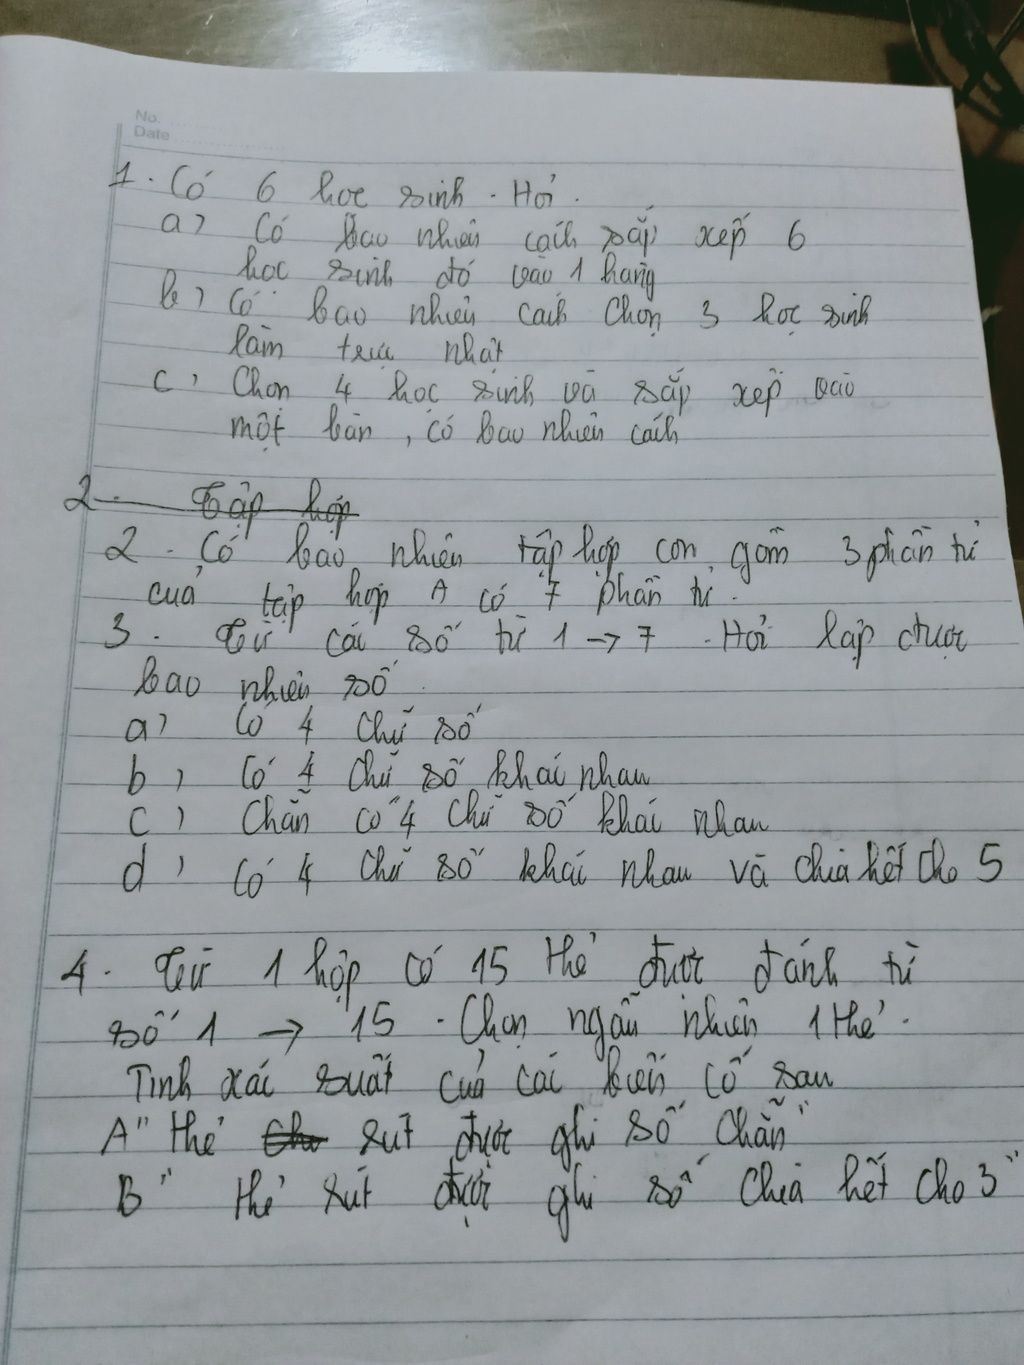 No.
Date
1. Có 6 học sinh. Hỏi.
a) Có bao nhiêu cách sắp xếp 6
học sinh đó vào 1 hàng
b) Có bao nhiêu cách chọn 3 học sinh
làm trực nhật
c) Chọn 4 học sinh và sắp xếp vào
một bàn, có bao nhiêu cách
2. Tập hợp
2. Có bao nhiêu tập hợp con gồm 3 phần tử
của tập hợp A có 7 phần tử.
3. Từ các số từ 1 → 7. Hỏi lập được
bao nhiêu số.
a) Có 4 chữ số
b) Có 4 chữ số khác nhau
c) Chẵn có 4 chữ số khác nhau
d) Có 4 chữ số khác nhau và chia hết cho 5
4. Từ 1 hộp có 15 thẻ được đánh từ
số 1 → 15. Chọn ngẫu nhiên 1 thẻ.
Tính xác suất của các biến cố sau
A" thẻ rút được ghi số chẵn"
B" thẻ rút được ghi số chia hết cho 3"